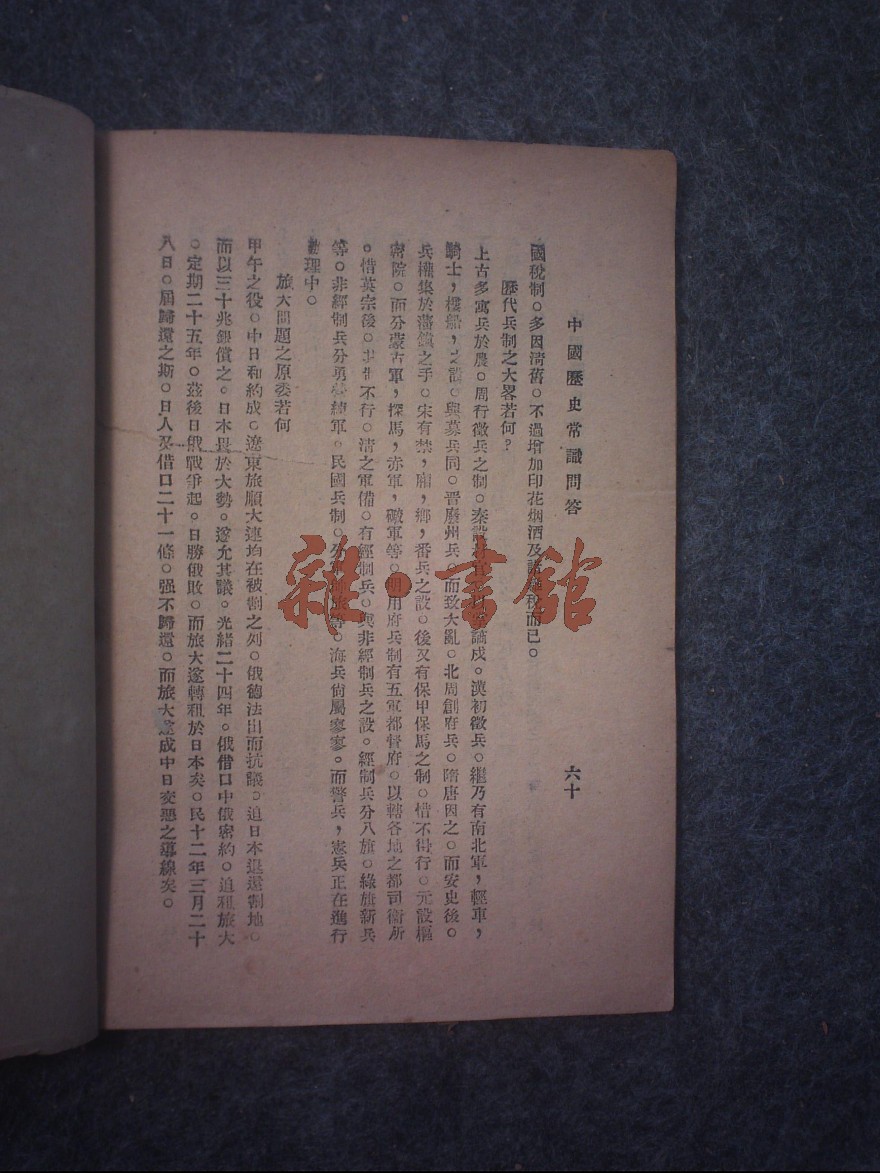 中國歷史常識問答
六十
國稅制。多因淸舊。不過增加印花烟酒及諸雜稅而已。
歷代兵制之大畧若何?
上古多寓兵於農。周行徵兵之制。秦設材官。謫戍。漢初徵兵。繼乃有南北軍,輕車,
騎士,樓船,之設。與募兵同。晋廢州兵。而致大亂。北周創府兵。隋唐因之。而安史後。
兵權集於藩鎭之手。宋有禁,廂,鄉,番兵之設。後又有保甲保馬之制。惜不得行。元設樞
密院。而分蒙古軍,探馬,亦軍,礮軍等。明用府兵制有五軍都督府。以轄各地之都司衞所
。惜英宗後。不行。淸之軍備。有經制兵。與非經制兵之設。經制兵分八旗。綠旗新兵
等。非經制兵分勇營練軍。民國兵制。分軍師旅等。海兵尙屬寥寥。而警兵,憲兵正在進行
勸理中。
旅大問題之原委若何
甲午之役。中日和約成。遼東旅順大連均在被割之列。俄德法出而抗議。追日本退還割地。
而以三十兆銀償之。日本畏於大勢。遂允其議。光緒二十四年。俄借口中俄密約。追租旅大
。定期二十五年。茲後日俄戰爭起。日勝俄敗。而旅大遂轉租於日本矣。民十二年三月二十
八日。屆歸還之期。日人又借口二十一條。强不歸還。而旅大遂成中日交惡之導線矣。
雜·書館